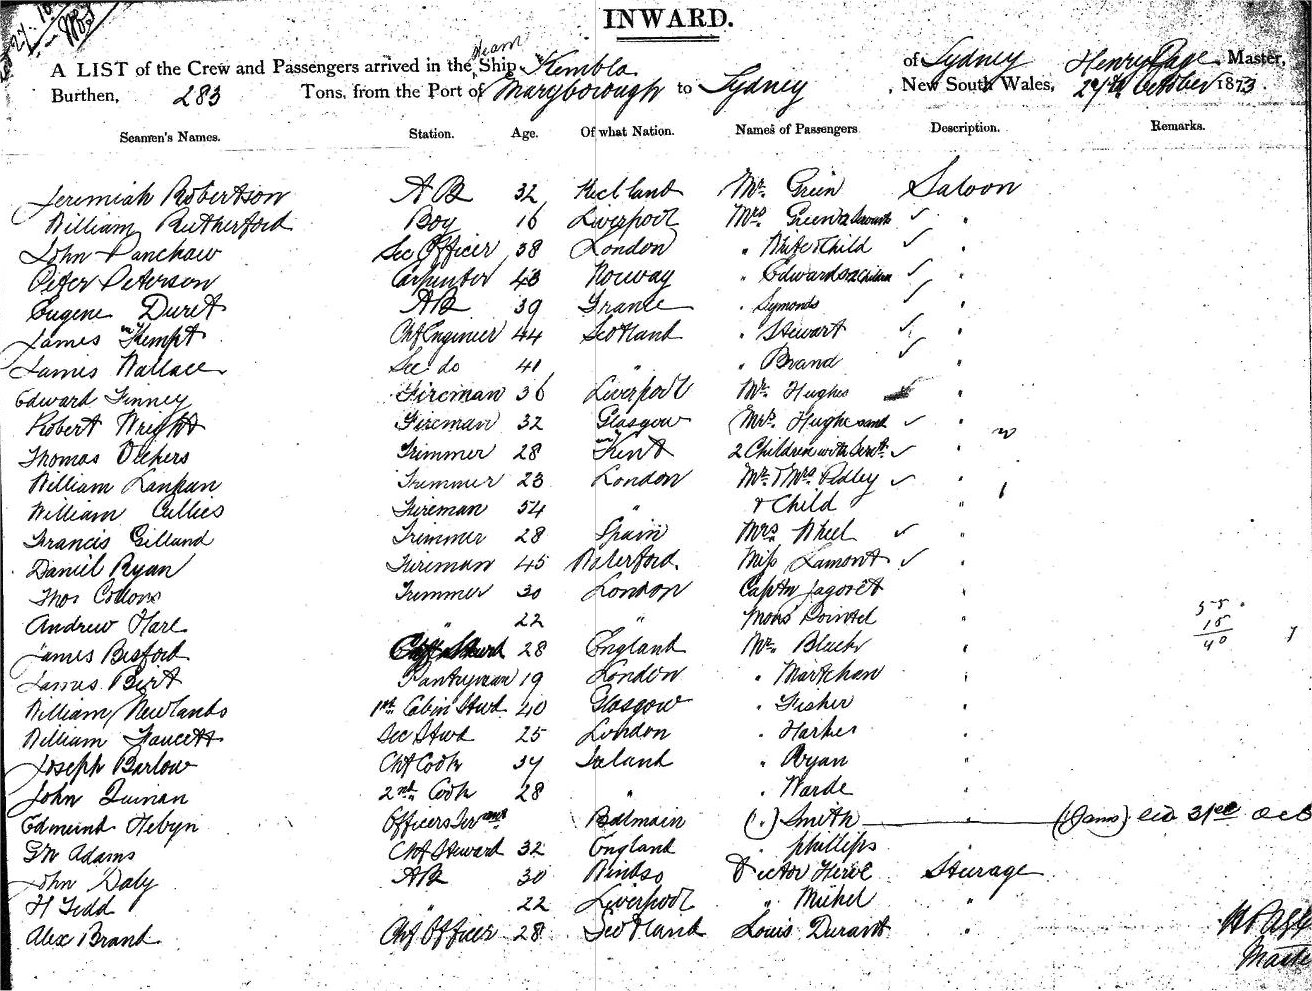 INWARD.
A LIST of the Crew and Passengers arrived in the Steam Ship Kembla of Sydney Henry Page, Master,
Burthen, 283 Tons, from the Port of Maryborough to Sydney, New South Wales, 27th October 1873.
Seamen's Names. Station. Age. Of what Nation. Names of Passengers Description. Remarks.
Jeremiah Robertson AB 32 Mr. Green Saloon
William Rutherford Boy 16 Liverpool Mrs Green &
John Sec Officer 38 London " Wife & Child "
Peter Peterson Carpenter 43 Norway " Edwards "
Eugene Duret AB 39 France " Symonds "
James Kempt Chf Engineer 44 Scotland " Stewart "
James Wallace Sec do 41 " " Brand "
Edward Finney Fireman 36 Liverpool Mr. Hughes "
Robert Wright Fireman 32 Glasgow Mrs. Hughes and "
Thomas Trimmer 28 Kent 2 Children with Servt. "
William Trimmer 23 London Mr. & Mrs Pedley "
William Fireman 54 " & Child "
Francis Gilland Trimmer 28 Spain Mrs Wheel "
Daniel Ryan Fireman 45 Waterford Miss Lamont "
Thos Trimmer 30 London Captn "
Andrew Hare " 22 " "
James Bisford Chf Stewd 28 England Mr. Black "
James Birt Pantryman 19 London "
William Newlands 1st Cabin Stwd 40 Glasgow " Fisher "
William Faucett Sec Stwd 25 London "
Joseph Barlow Chf Cook Ireland " Ryan "
John Quinan 2nd Cook 28 " " Warde "
Edmund Officers Servant Balmain (") Smith " (James) 31st Oct
GW Adams Chf Steward 32 England " Phillips
John Daly AB 30 Windso Victor Herve Steerage
H Todd " 22 Liverpool " Michel "
Alex Brand Chf Officer 28 Scotland Louis Durant "
Master